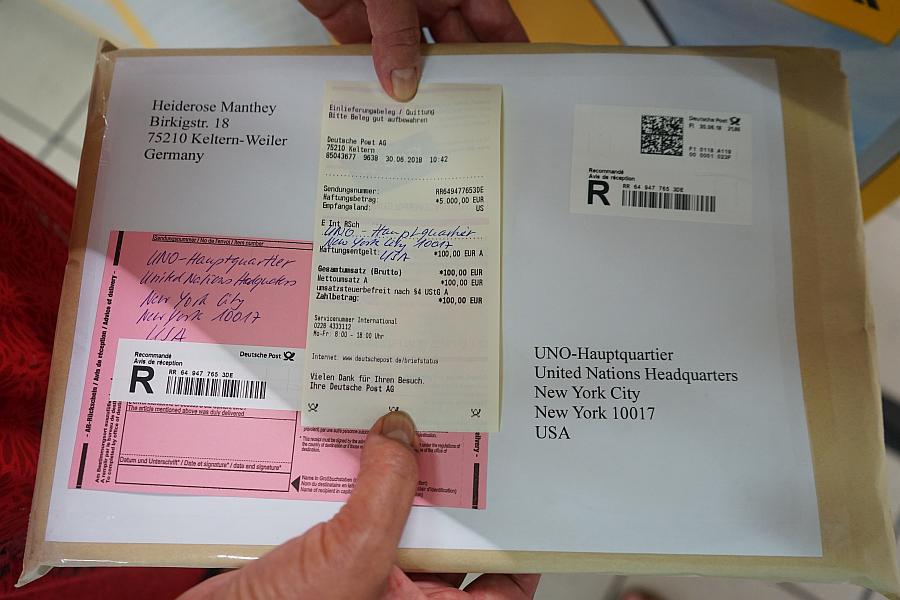 Heiderose Manthey
Birkigstr. 18
75210 Keltern-Weiler
Germany
Einlieferungsbeleg / Quittung
Bitte Beleg gut aufbewahren
Deutsche Post AG
75210 Keltern
85043677 9638 30.06.2018 10:42
Sendungsnummer: RR649477653DE
Haftungsbetrag: *5.000,00 EUR
Empfangsland: US
E Int RSch
UNO-Hauptquartier
New York City 10017
USA
Haftungsentgelt: *100,00 EUR A
Gesamtumsatz (Brutto) *100,00 EUR
Nettoumsatz A *100,00 EUR
umsatzsteuerbefreit nach §4 UStG A
Zahlbetrag: *100,00 EUR
Servicenummer International
0228 4333112
Mo-Fr: 8:00 - 18:00 Uhr
Internet: www.deutschepost.de/briefstatus
Vielen Dank für Ihren Besuch.
Ihre Deutsche Post AG
Deutsche Post
Recommandé
Avis de réception
R RR 64 947 765 3DE
Sendungsnummer / No de l'envoi / Item number
UNO-Hauptquartier
United Nations Headquarters
New York City
New York 10017
USA
Recommandé
Avis de réception
Deutsche Post
R RR 64 947 765 3DE
The article mentioned above was duly delivered
Datum und Unterschrift* / Date et signature* / date and signature*
- AR-Rückschein / Avis de réception / Advice of delivery -
UNO-Hauptquartier
United Nations Headquarters
New York City
New York 10017
USA